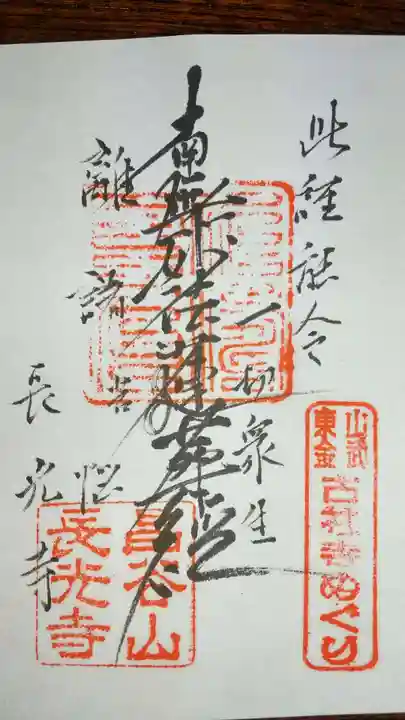 此経能令
一切衆生
南無妙法蓮華経
離諸苦悩
長光寺
山武
東金
古社寺めぐり
昌谷山
長光寺